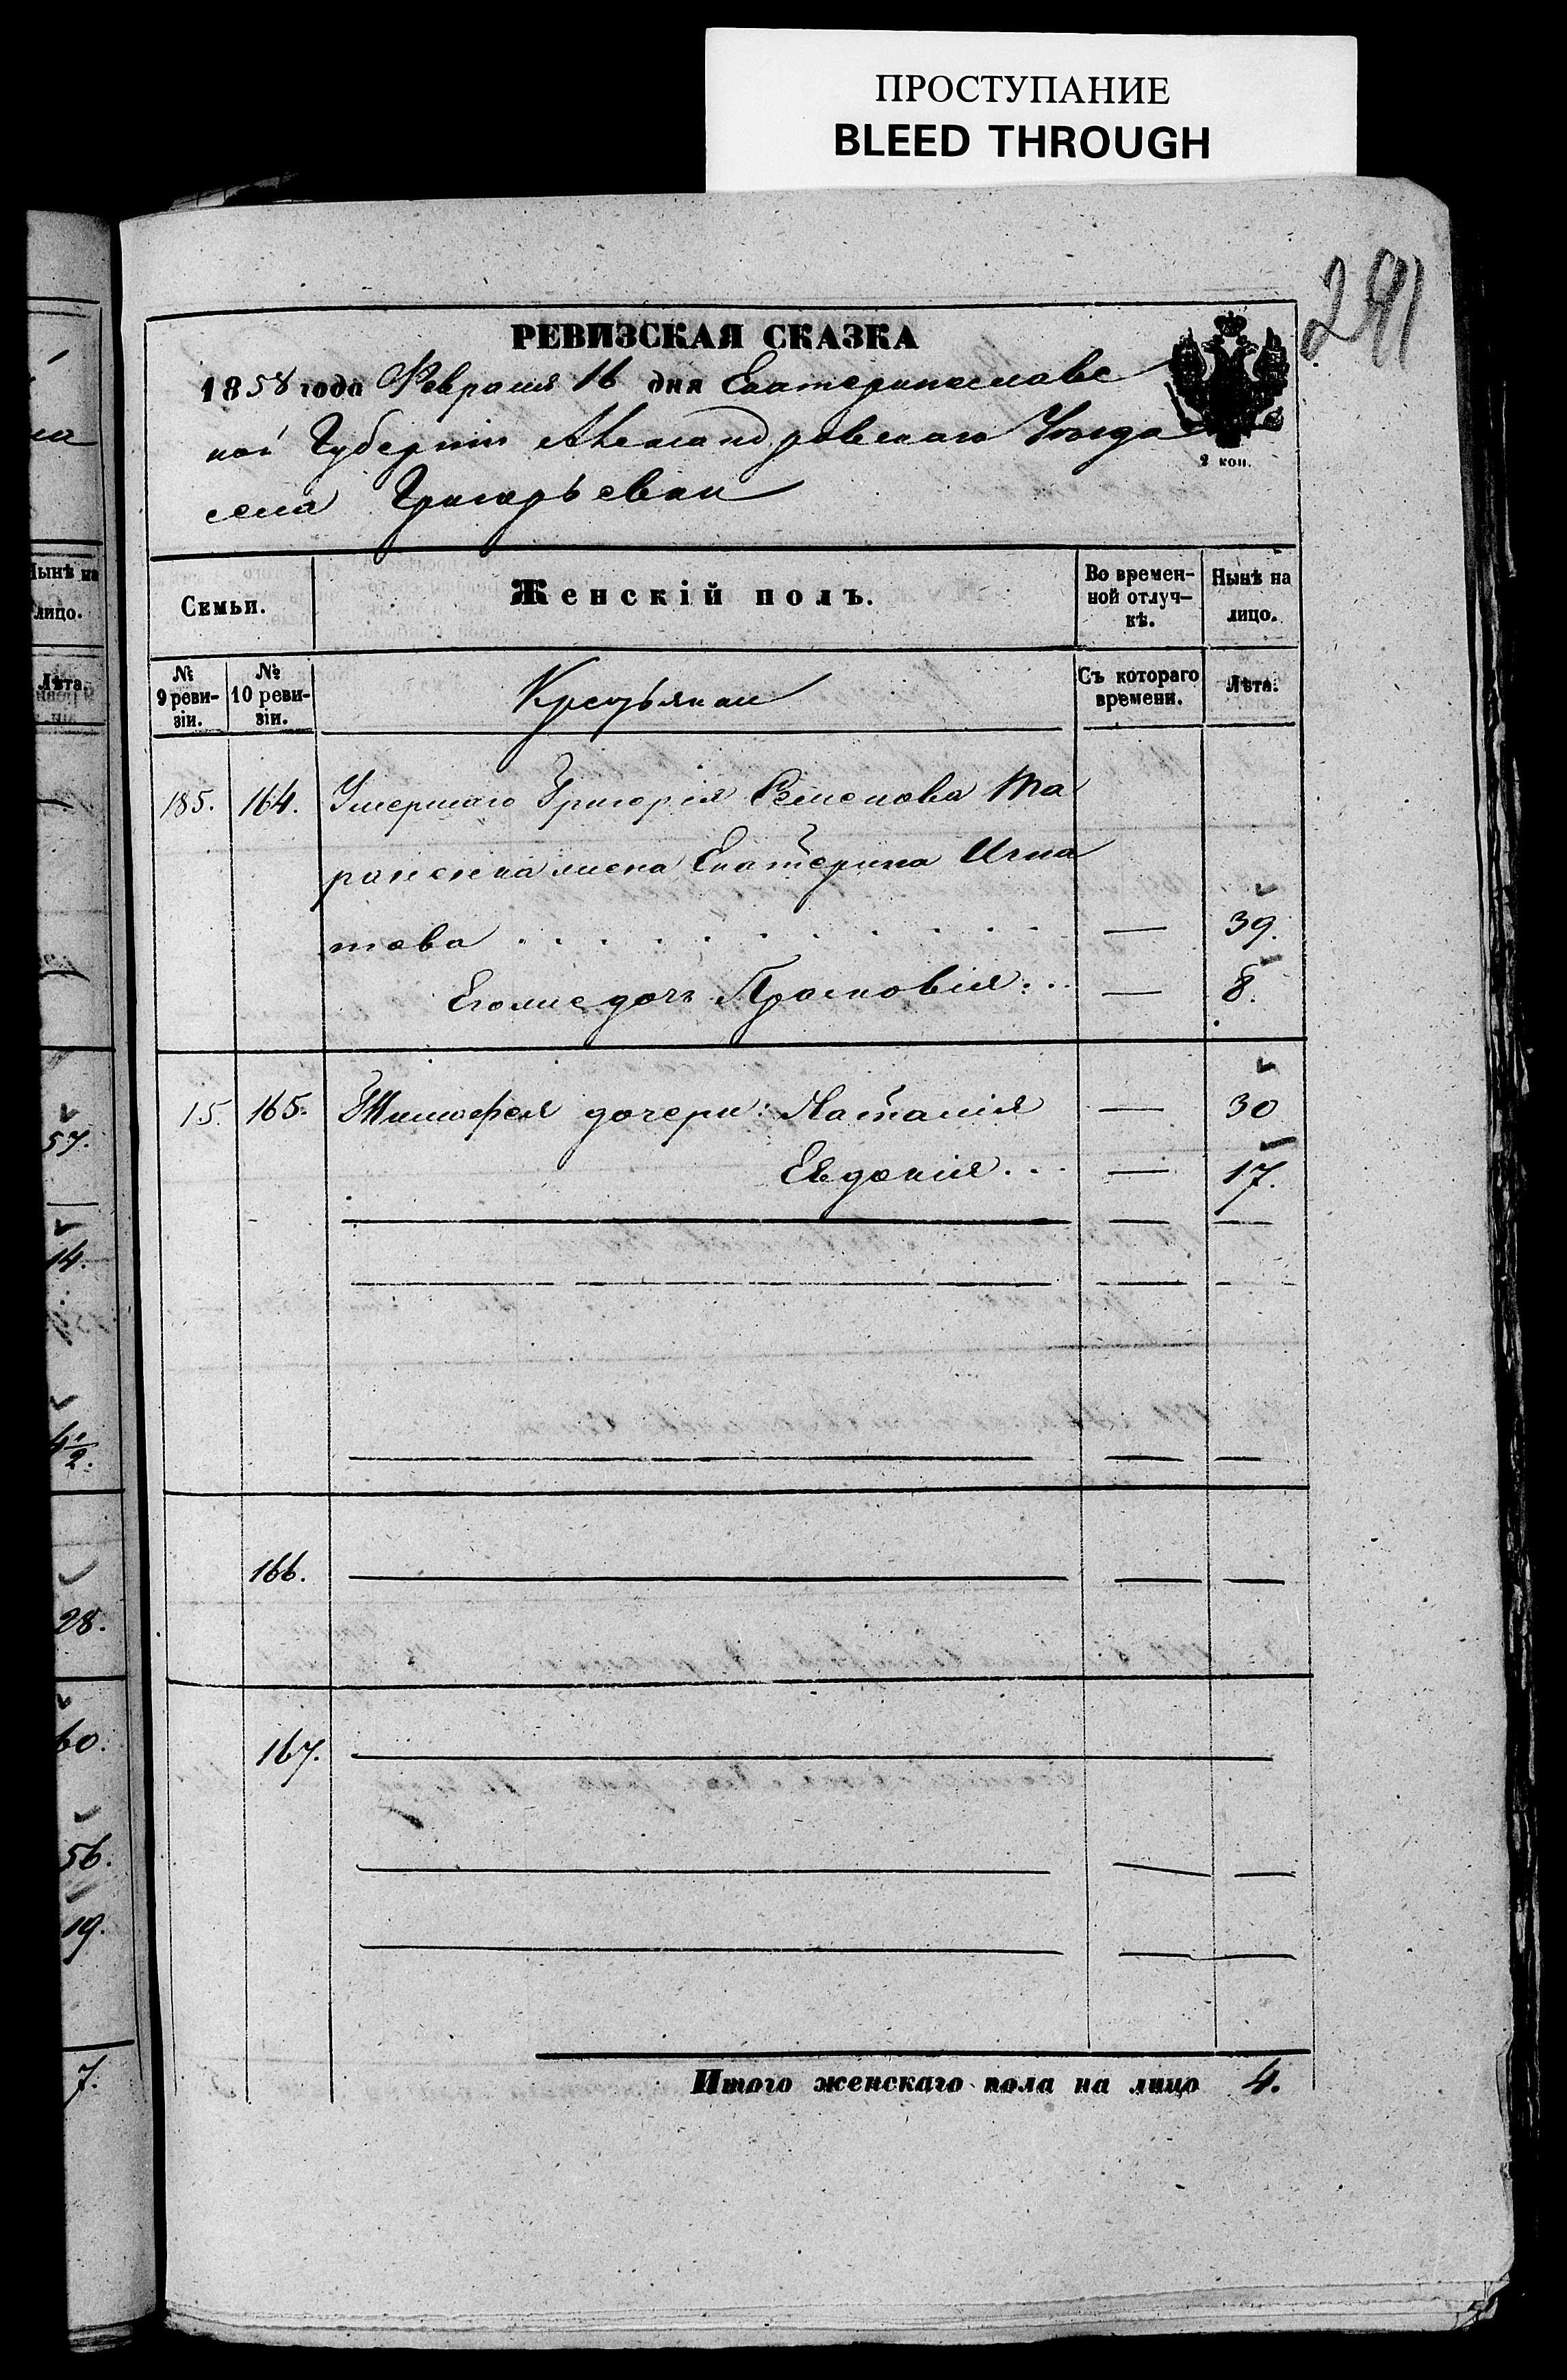 ПРОСТУПАНИЕ
BLEED THROUGH
РЕВИЗСКАЯ СКАЗКА
1858 года Февраля 16 дня Екатеринославс
кой Губерніи Александровскаго Уѣзда
2 коп.
села Григорьевки
Семьи.
Женскій полъ.
Во времен-
ной отлуч-
кѣ.
Нынѣ на
лицо.
№
9 реви-
зіи.
№
10 реви-
зіи.
Крестьянки
Съ котораго
времени.
Лѣта.
185. 164. Умершаго Григорія Семенова Та
жена Екатерина Игна
това — 39.
Его же дочь Просковія — 8.
15. 165. Тимофея дочери: Наталія — 30
Евдокія — 17.
166.
167.
Итого женскаго пола на лицо 4.
Нынѣ на
лицо.
Лѣта.
57.
14.
28.
60.
56.
19.
7.